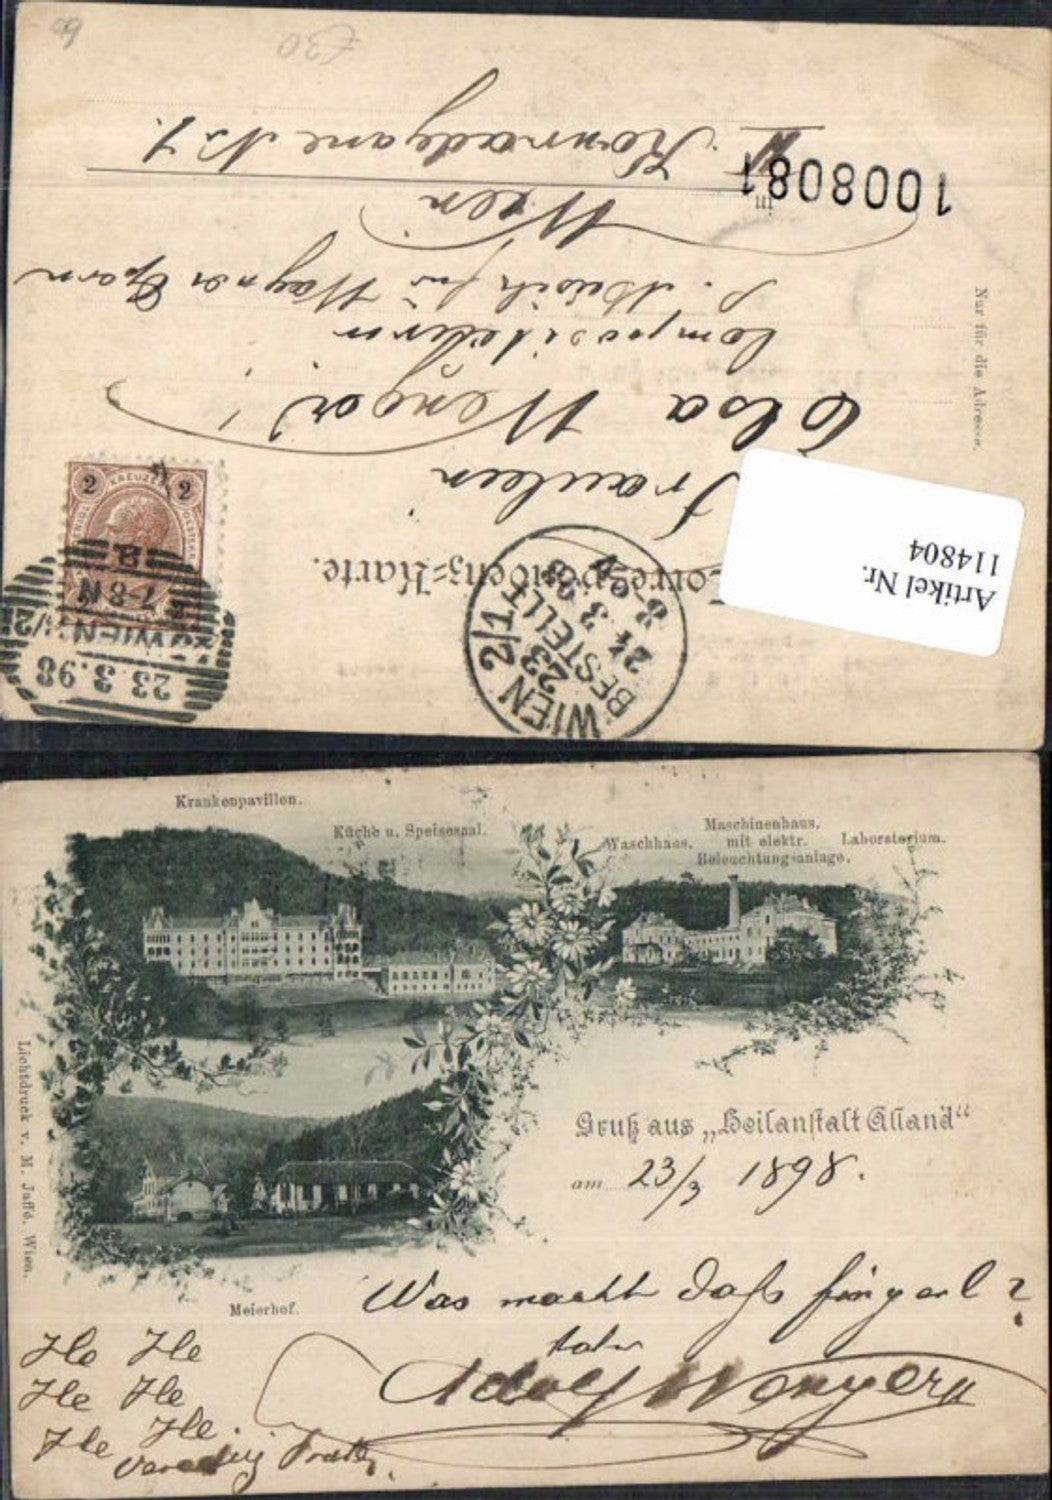 Artikel Nr.
114804
Correspondenz-Karte.
Fräulein
Elsa Wenger!
Compositeterin
Wagner Opern
in Wien
1008081
Nur für die Adresse.
2 KREUZER 2
WIEN 2/1
23
BESTELLT
24 3 98
23.3.98
WIEN 1/2
7-8 N
B
£30
60
Krankenpavillon.
Küche u. Speisesaal.
Waschhaus.
Maschinenhaus.
mit elektr.
Beleuchtungsanlage.
Laboratorium.
Gruß aus „Heilanstalt Alland“
am 23/3 1898.
Meierhof.
Lichtdruck v. M. Jaffé, Wien.
Was macht daß fingerl?
He He
He He
He He
Adolf Wenger